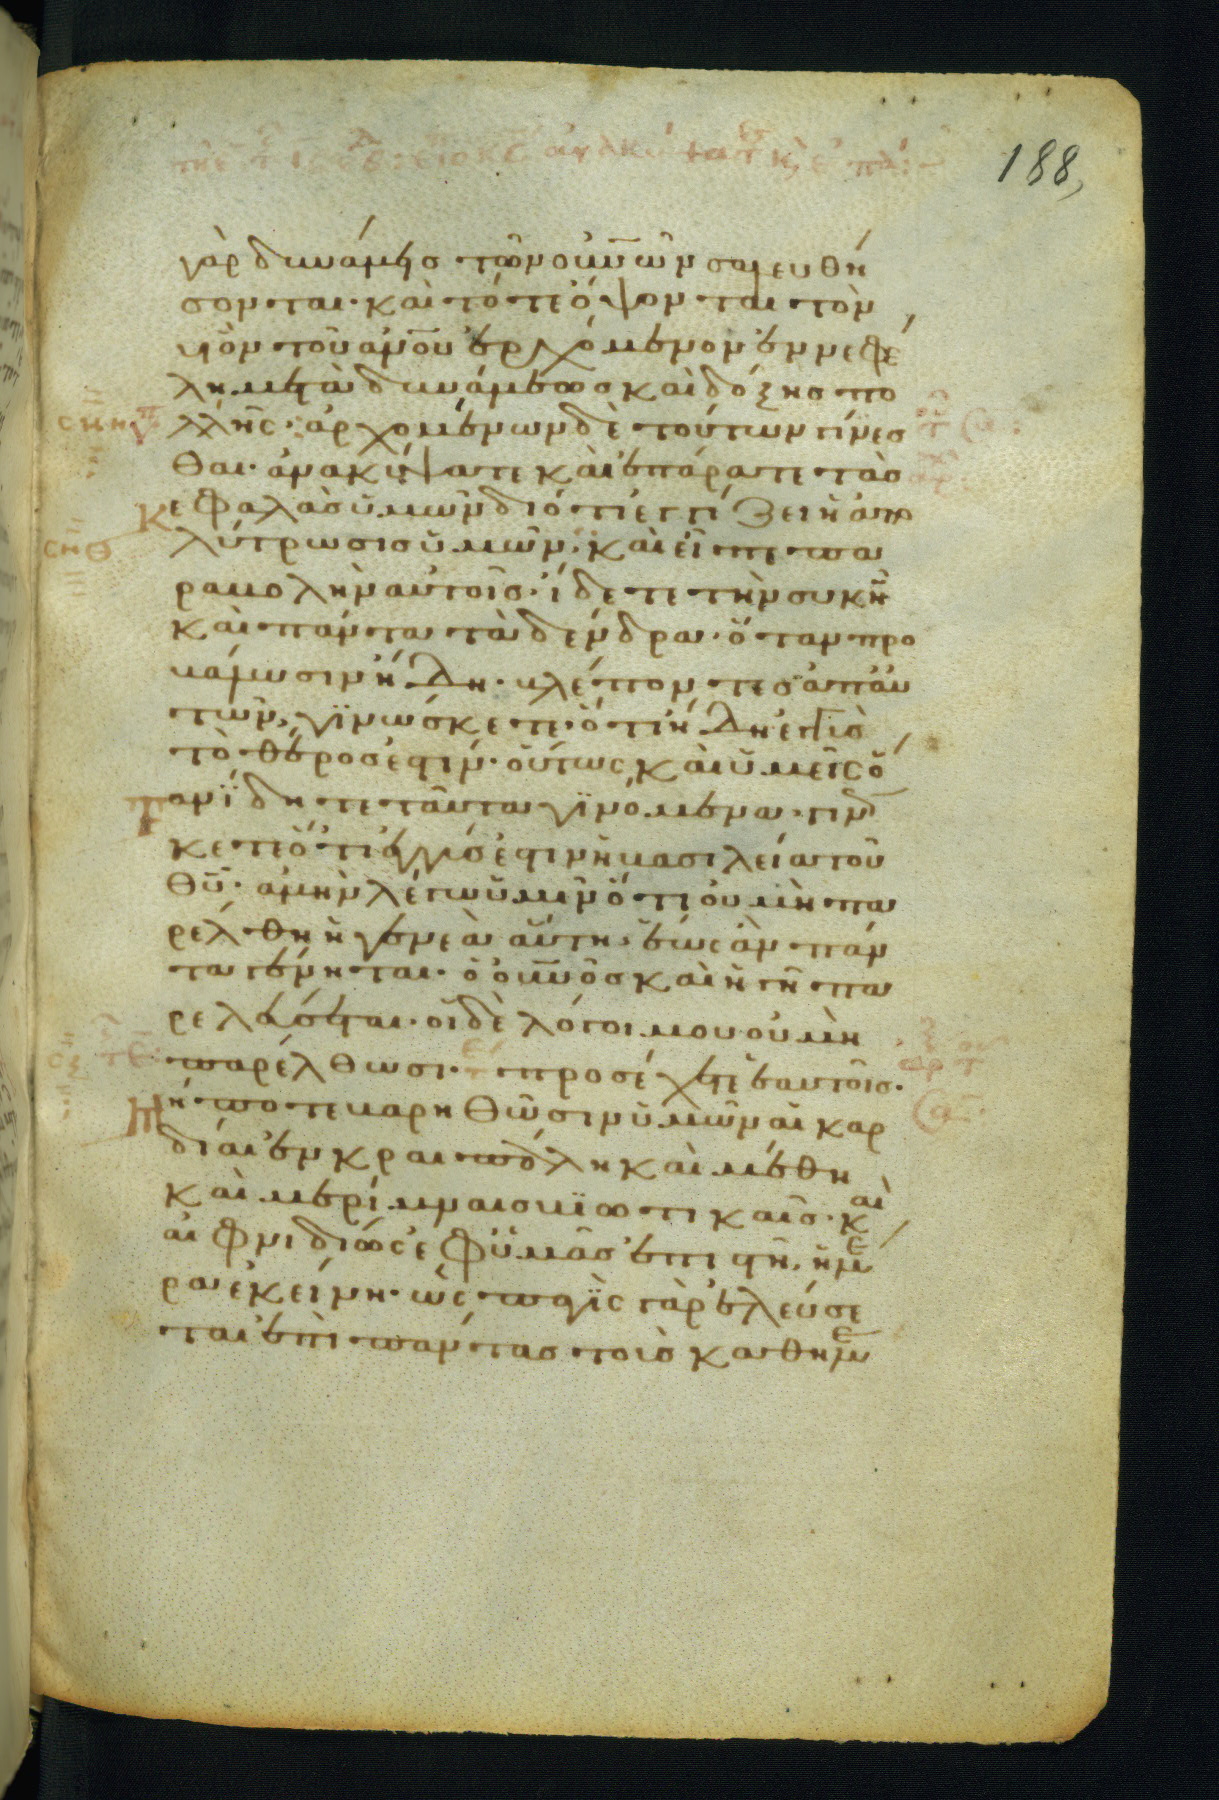 188
γὰρ δυνάμεις τῶν οὐνῶν σαλευθή
σονται· καὶ τότε ὄψονται τὸν
υἱὸν τοῦ ἀνου ἐρχόμενον ἐν νεφέ
λη μετὰ δυνάμεως καὶ δόξης πο
λλῆς· ἀρχομένων δὲ τούτων γίνεσ
θαι· ἀνακύψατε καὶ ἐπάρατε τὰς
κεφαλὰς ὑμῶν διότι ἐγγίζει ἡ ἀπο
λύτρωσις ὑμῶν· καὶ εἶπε πα
ραβολὴν αὐτοῖς· ἴδετε τὴν συκῆν
καὶ πάντα τὰ δένδρα· ὅταν προ
βάλωσιν ἤδη· βλέποντες ἀπ' αὐ
τῶν, γινώσκετε ὅτι ἤδη ἐγγὺς
τὸ θέρος ἐστίν· οὕτως καὶ ὑμεῖς ὅ
ταν ἴδητε ταῦτα γινόμενα· γινώσ
κετε ὅτι ἐγγύς ἐστιν ἡ βασιλεία τοῦ
θυ· ἀμὴν λέγω ὑμῖν ὅτι οὐ μὴ πα
ρέλθη ἡ γενεὰ αὕτη· ἕως ἂν πάν
τα γένηται· ὁ οὐνὸς καὶ ἡ γῆ πα
ρελεύσεται· οἱ δὲ λόγοι μου οὐ μὴ
παρέλθωσι· προσέχετε ἑαυτοῖς·
μήποτε βαρηθῶσιν ὑμῶν αἱ καρ
δίαι ἐν κραιπάλη καὶ μέθη
καὶ μερίμναις βιωτικαῖς· καὶ
αἰφνιδίως ἐφ' ὑμᾶς ἐπιστῆ· ἡ ἡμέ
ρα ἐκείνη· ὡς παγὶς γὰρ ἐλεύσε
ται ἐπὶ πάντας τοὺς καθημέ